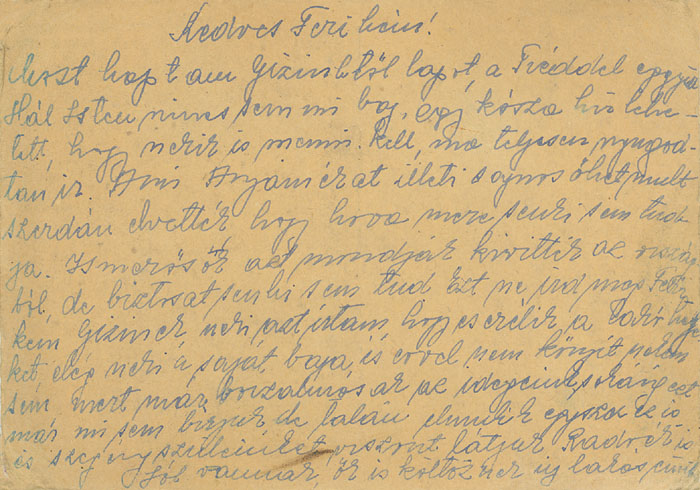 Kedves Feri kém!
Most kaptam Gizinktől lapot, a Tiéddel együtt
Hál Isten nincs semmi baj, egy kósza hír lehe-
tett, hogy neki is menni kell, ma teljesen nyugod-
tan ír. Ami Anyámékat illeti sajnos őket mult
szerdán elvették, hogy hova merre senki sem tud-
ja. Ismerősök azt mondják kivitték az
ból, de biztosat senki sem tud Ezt ne írd meg
kém Gizinek neki azt írtam hogy cserélik a
ket, elég neki a saját baja, is evvel nem könyít
sem mert már bizalmósak az idegeink, sokáig ezt
már mi sem bírjuk de talán elmulik egyszer ez is
és szegény szüleinket viszont látjuk Radóék is
Jól vannak, ők is költöznek új lakós